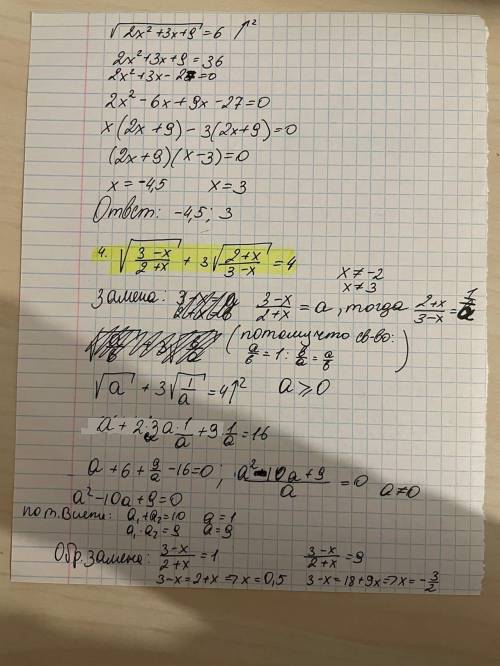 √(2x²+3x+9) = 6 ↑²
2x²+3x+9=36
2x²+3x-27=0
2x²-6x+9x-27=0
x(2x+9)-3(2x+9)=0
(2x+9)(x-3)=0
x=-4,5 x=3
Ответ: -4,5; 3
4. √((3-x)/(2+x)) + 3√((2+x)/(3-x)) = 4
x≠-2
x≠3
Замена: (3-x)/(2+x) = a, тогда (2+x)/(3-x) = 1/a
(потому что св-во:
a/b = 1 : b/a = a/b)
√a + 3√(1/a) = 4 ↑² a⩾0
a + 2·3a·1/a + 9·1/a = 16
a+6+9/a-16=0; (a²-10a+9)/a = 0 a≠0
a²-10a+9=0
по т. Виета: a₁+a₂=10 a=1
a₁·a₂=9 a=9
Обр. замена: (3-x)/(2+x) = 1 (3-x)/(2+x) = 9
3-x=2+x => x=0,5 3-x=18+9x => x=-3/2